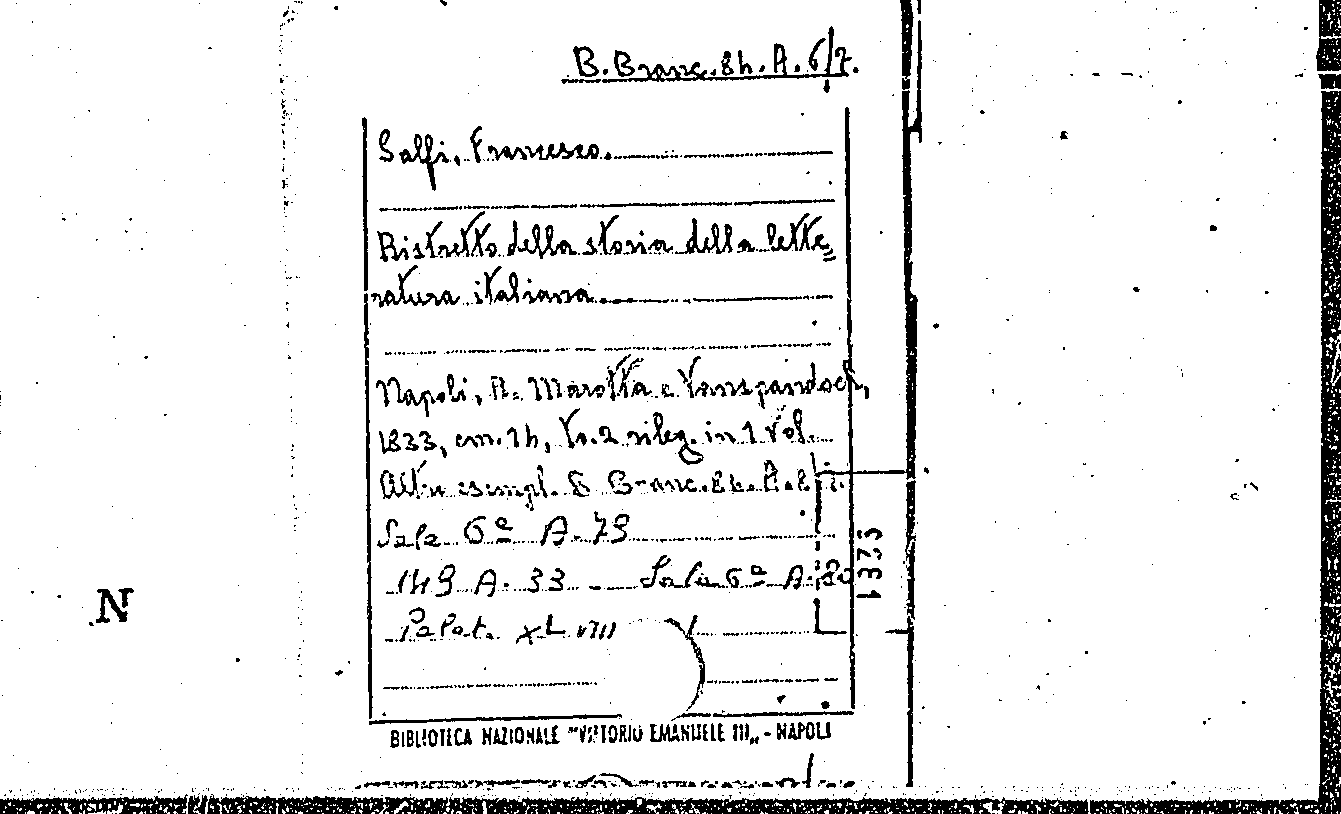 B. Branc. 8h. A. 6/7.
Salfi, Francesco.
Ristretto della storia della lette=
ratura italiana.
Napoli, R. Marotta e Vanspandoch,
1833, cm. 1h, Vv. 2 rileg. in 1 vol.
esempl. B Branc. 8h. A. 8
Sala 6ª A. 79
149 A. 33 - Sala 6ª A. 80
1323
Palat. XLVIII
N
BIBLIOTECA NAZIONALE "VITTORIO EMANUELE III„ - NAPOLI